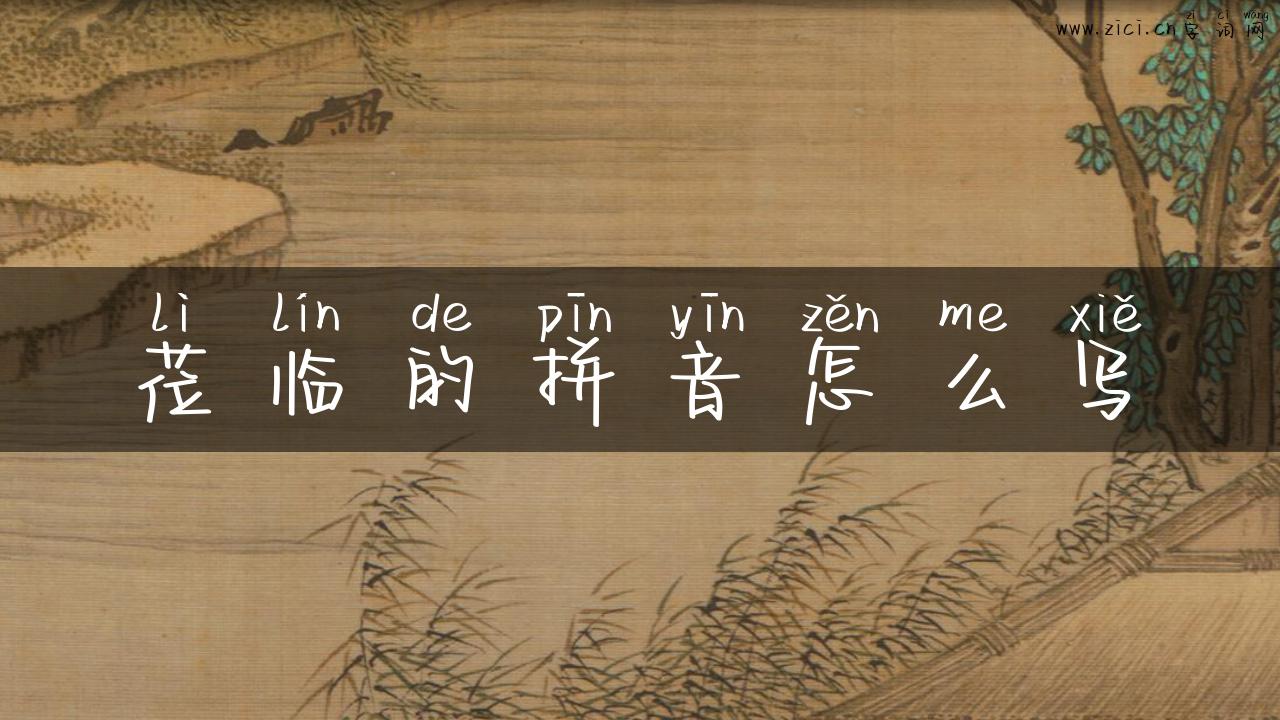 zì cí wǎng
www.zici.cn字词网
lì lín de pīn yīn zěn me xiě
莅临的拼音怎么写